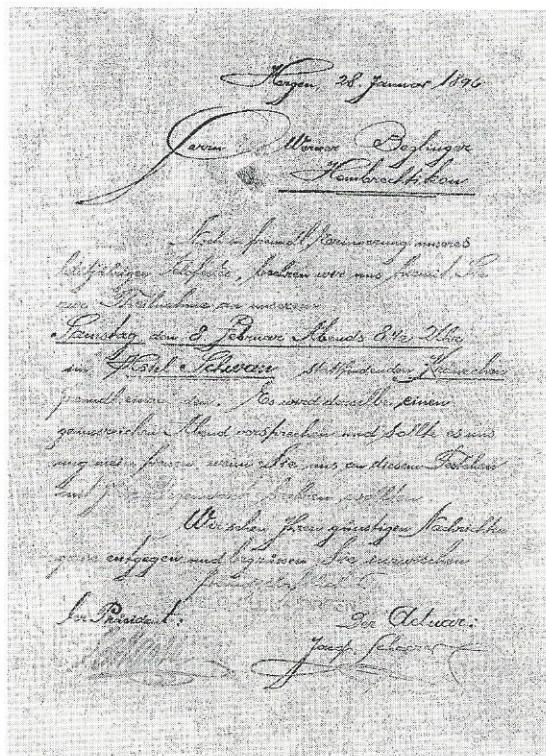 Horgen, 28. Januar 1896
Herrn Werner Bezlinger
Hombrechtikon
Noch in freundl. Erinnerung unseres
letztjährigen, beehren wir uns hiemit, Sie
zur Theilnahme an unserem
Samstag den 8 Februar Abends 8½ Uhr
im Hotel Schwan stattfindenden Kränzchen
freundl. Es wird derselbe einen
genussreichen Abend versprechen und sollte es uns
ungemein freuen, wenn Sie uns an diesem
mit Ihrer Gegenwart beehren wollten
Wir sehen Ihren günstigen Nachrichten
gerne entgegen und begrüssen Sie inzwischen
Der Präsident: Der Actuar: